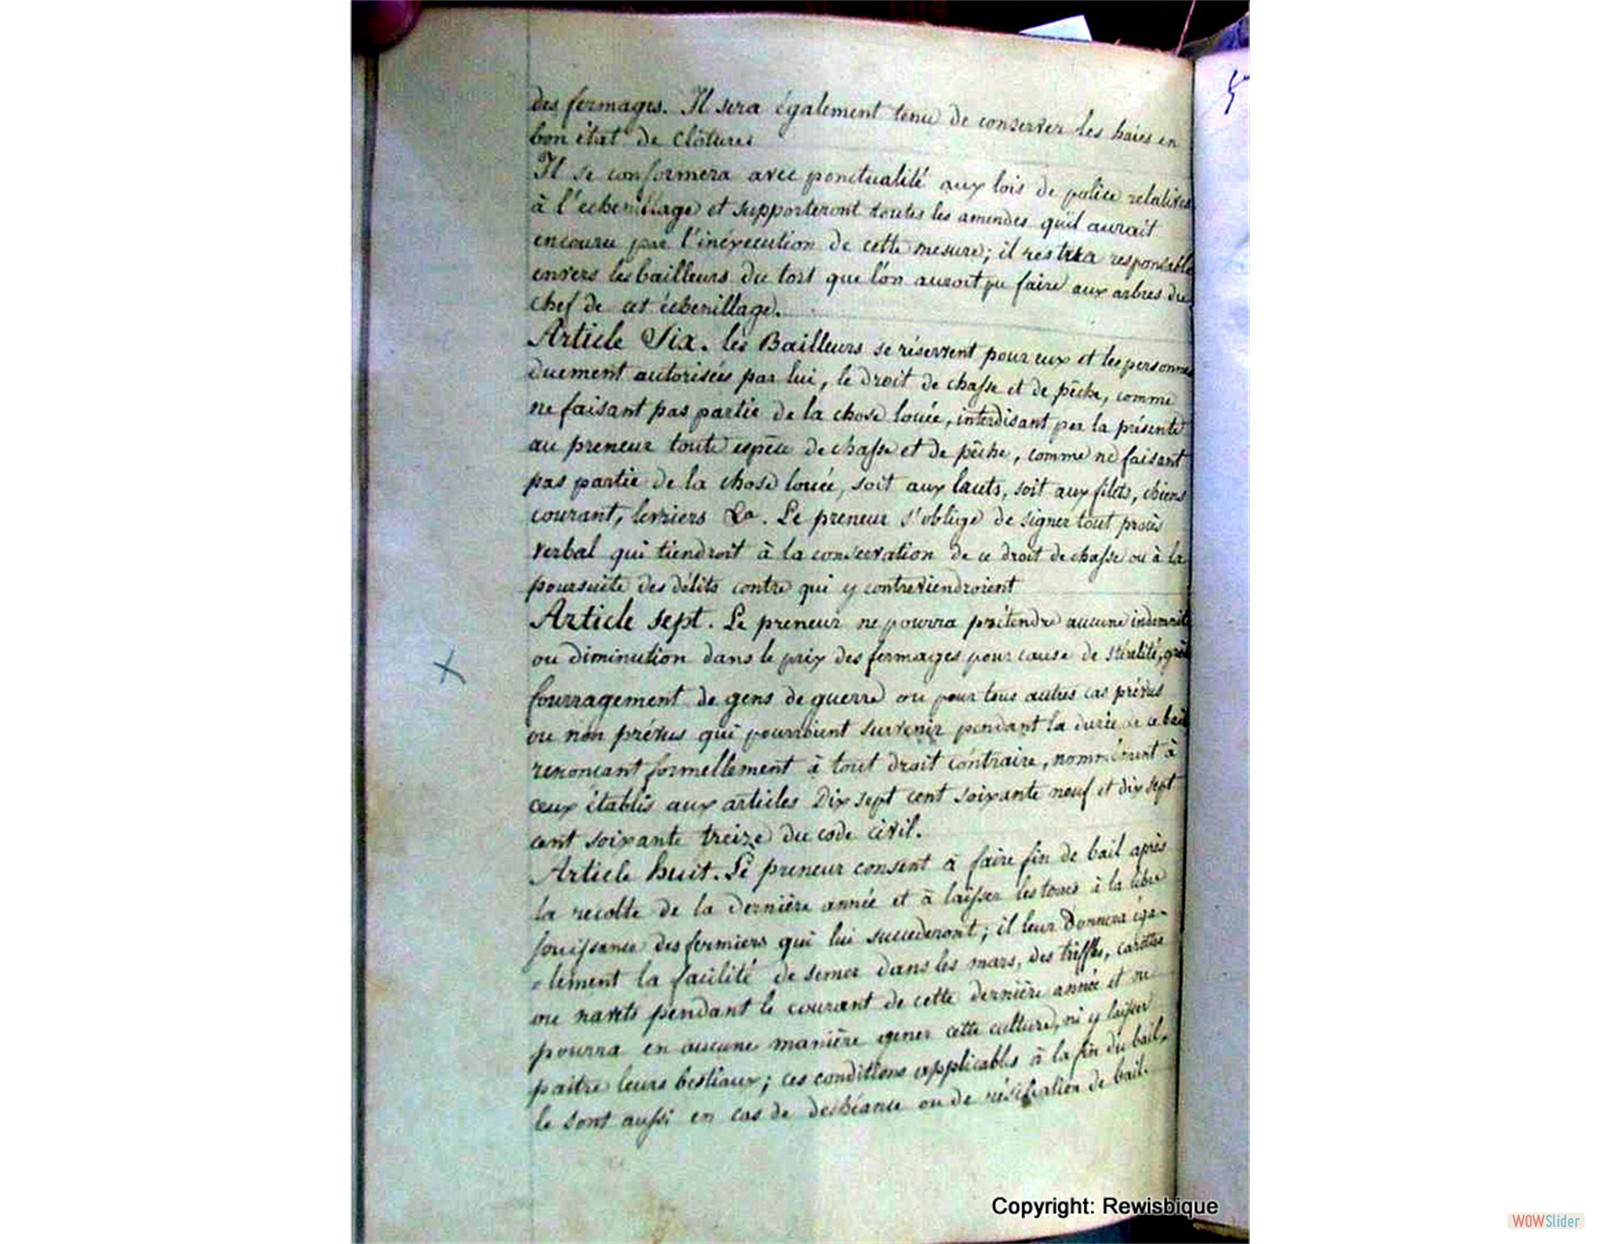 des fermages. Il sera également tenu de conserver les haies en
bon état de clôture.
Il se conformera avec ponctualité aux lois de police relatives
à l'echenillage et supporteront toutes les amendes qu'il aurait
encouru par l'inéxecution de cette mesure; il restera responsable
envers les bailleurs du tort que l'on auroit pu faire aux arbres du
chef de cet échenillage.
Article Six. les Bailleurs se réservent pour eux et les personnes
duement autorisées par lui, le droit de chasse et de pêche, comme
ne faisant pas partie de la chose louée, interdisant par la présente
au preneur toute espèce de chasse et de pêche, comme ne faisant
pas partie de la chose louée, soit aux lauts, soit aux filets, chiens
courant, levriers &a. Le preneur s'oblige de signer tout procès
verbal qui tiendroit à la conservation de ce droit de chasse ou à la
poursuite des délits contre qui y contreviendroient
Article sept. Le preneur ne pourra prétendre aucune indemnité
ou diminution dans le prix des fermages pour cause de stérélité,
fourragement de gens de guerre ou pour tous autres cas prévus
ou non prévus qui pourroient survenir pendant la durée de ce bail
renoncant formellement à tout droit contraire, nommément à
ceux établis aux articles Dix sept cent soixante neuf et dix sept
cent soixante treize du code civil.
Article huit. Le preneur consent à faire fin de bail après
la recolte de la dernière année et à laisser les terres à la libre
jouissance des fermiers qui lui succederont; il leur Donnera éga-
=lement la facilité de semer dans les mars, des triffles, carottes
ou navets pendant le courant de cette dernière année et ne
pourra en aucune manière gener cette culture, ni y laisser
paitre leurs bestiaux; ces conditions applicables à la fin du bail,
le sont aussi en cas de dechéance ou de résiliation de bail.
Copyright: Rewisbique
WOWSlider